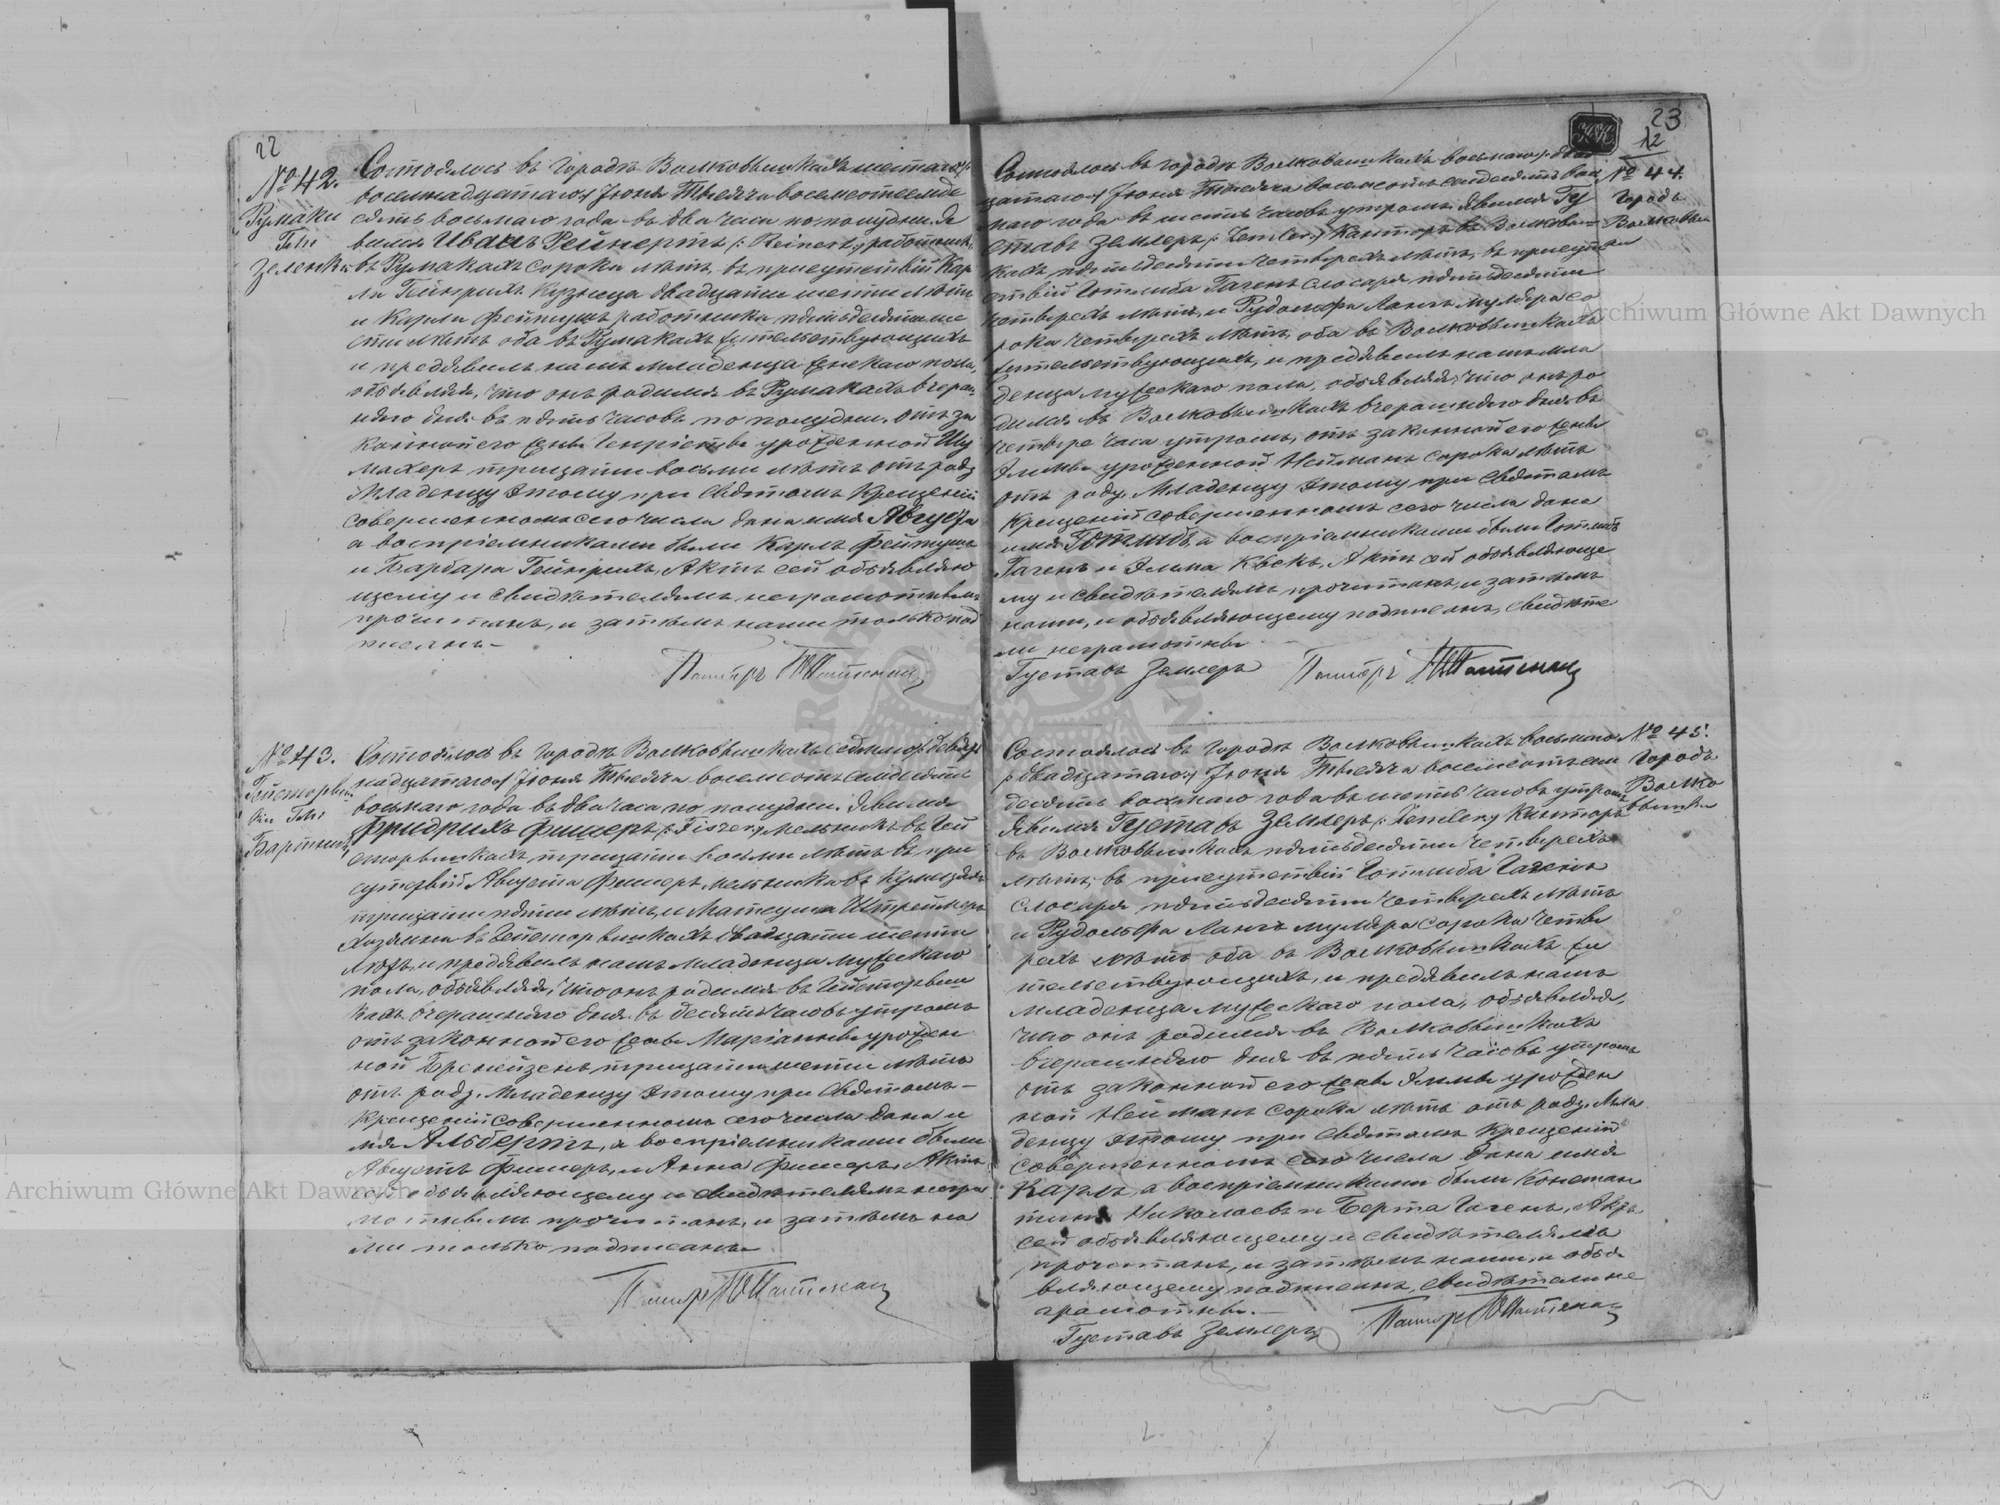 22
№ 42.
Румаки
Гми
Зеленка
Состоялось въ городѣ Волковышкахъ шестаго /:
восемнадцатаго:/ Іюня Тысяча восемьсотъ семде
сятъ восьмаго года въ два часа по полудни. Я
вился Иванъ Рейнертъ /: Reinert :/ работникъ
въ Румакахъ сорока лѣтъ, въ присутствіи Кар
ла Гейнрихъ Кузнеца двадцати шести лѣтъ
и Карла Фейтушъ работника пятьдесяти ше
сти лѣтъ оба въ Румакахъ жительствующихъ
и предявилъ намъ младенца женскаго пола,
объявляя, что онъ родился въ Румакахъ вчераш
няго дня въ пять часовъ по полудни, отъ за
конной его жены Генріетты урожденной Шу
махеръ тридцати восьми лѣтъ отъ роду
Младенцу этому при Святомъ Крещеніи
совершенномъ сего числа дано имя Августа
а воспріемниками были Карлъ Фейтушъ
и Барбара Гейнрихъ, Актъ сей объявляю
щему и свидѣтелямъ неграмотнымъ
прочитанъ, и затѣмъ нами только под
писанъ.
Пасторъ
№ 43.
Гейсторвиш
ки Гми
Бартники
Состоялось въ городѣ Волковышкахъ седьмаго /: девят
надцатаго:/ Іюня Тысяча восемьсотъ семдесятъ
восьмаго года въ два часа по полудни. Явился
Фридрихъ Фишеръ /: Fiszer :/ Мельникъ въ Гей
сторвишкахъ, тридцати восьми лѣтъ въ при
сутствіи Августа Фишеръ мельника въ
тридцати пяти лѣтъ, и Матеуша Штреймеръ
Хозяина въ Гейсторвишкахъ двадцати шести
лѣтъ, и предявилъ намъ младенца мужескаго
пола, объявляя, что онъ родился въ Гейсторвиш
кахъ вчерашняго дня въ десять часовъ утромъ
отъ законной его жены Маріанны урожден
ной тридцати шести лѣтъ
отъ роду. Младенцу этому при Святомъ
Крещеніи совершенномъ сего числа дано и
мя Альбертъ, а воспріемниками были
Августъ Фишеръ, и Анна Фишеръ, Актъ
сей объявляющему и свидѣтелямъ негра
мотнымъ прочитанъ, и затѣмъ на
ми только подписанъ.
Пасторъ
23
12
№ 44.
Городъ
Волковыш
ки
Состоялось въ городѣ Волковышкахъ восьмаго /: двад
цатаго:/ Іюня Тысяча восемьсотъ семдесятъ вось
маго года въ шесть часовъ утромъ. Явился Гу
ставъ Землеръ /: Zemler :/ Канторъ въ Волковыш
кахъ, пятьдесяти четырехъ лѣтъ, въ присут
ствіи Готлиба Гагенъ слосаря пятьдесяти
четырехъ лѣтъ, и Рудольфа Лангъ мулѣра со
рока четырехъ лѣтъ, оба въ Волковышкахъ
жительствующихъ, и предявилъ намъ мла
денца мужескаго пола, объявляя, что онъ ро
дился въ Волковышкахъ вчерашняго дня въ
четыре часа утромъ, отъ законной его жены
Эммы урожденной Нейманъ сорока лѣтъ
отъ роду. Младенцу этому при Святомъ
Крещеніи совершенномъ сего числа дано
имя Готлибъ, а воспріемниками были Готлибъ
Гагенъ и Эльма Квекъ, Актъ сей объявляюще
му и свидѣтелямъ прочитанъ, и затѣмъ
нами, и объявляющему подписанъ, свидѣте
ли неграмотны.
Густавъ Землеръ Пасторъ
№ 45.
Городъ
Волко
вышки
Состоялось въ городѣ Волковышкахъ восьмаго
/: двадцатаго:/ Іюня Тысяча восемьсотъ сем
десятъ восьмаго года въ шесть часовъ утромъ
Явился Густавъ Землеръ /: Zemler :/ Канторъ
въ Волковышкахъ пятьдесяти четырехъ
лѣтъ, въ присутствіи Готлиба Гагенъ
Слосаря пятьдесяти четырехъ лѣтъ
и Рудольфа Лангъ мулѣра сорока четы
рехъ лѣтъ оба въ Волковышкахъ жи
тельствующихъ, и предявилъ намъ
младенца мужескаго пола, объявляя,
что онъ родился въ Волковышкахъ
вчерашняго дня въ пять часовъ утромъ
отъ законной его жены Эммы урожден
ной Нейманъ сорока лѣтъ отъ роду. Мла
денцу этому при Святомъ Крещеніи
совершенномъ сего числа дано имя
Карлъ, а воспріемниками были Констан
тинъ Николаевъ и Берта Гагенъ, Актъ
сей объявляющему и свидѣтелямъ
прочитанъ, и затѣмъ нами, и объя
вляющему подписанъ, свидѣтели не
грамотны.
Густавъ Землеръ Пасторъ
Archiwum Główne Akt Dawnych
Archiwum Główne Akt Dawnych